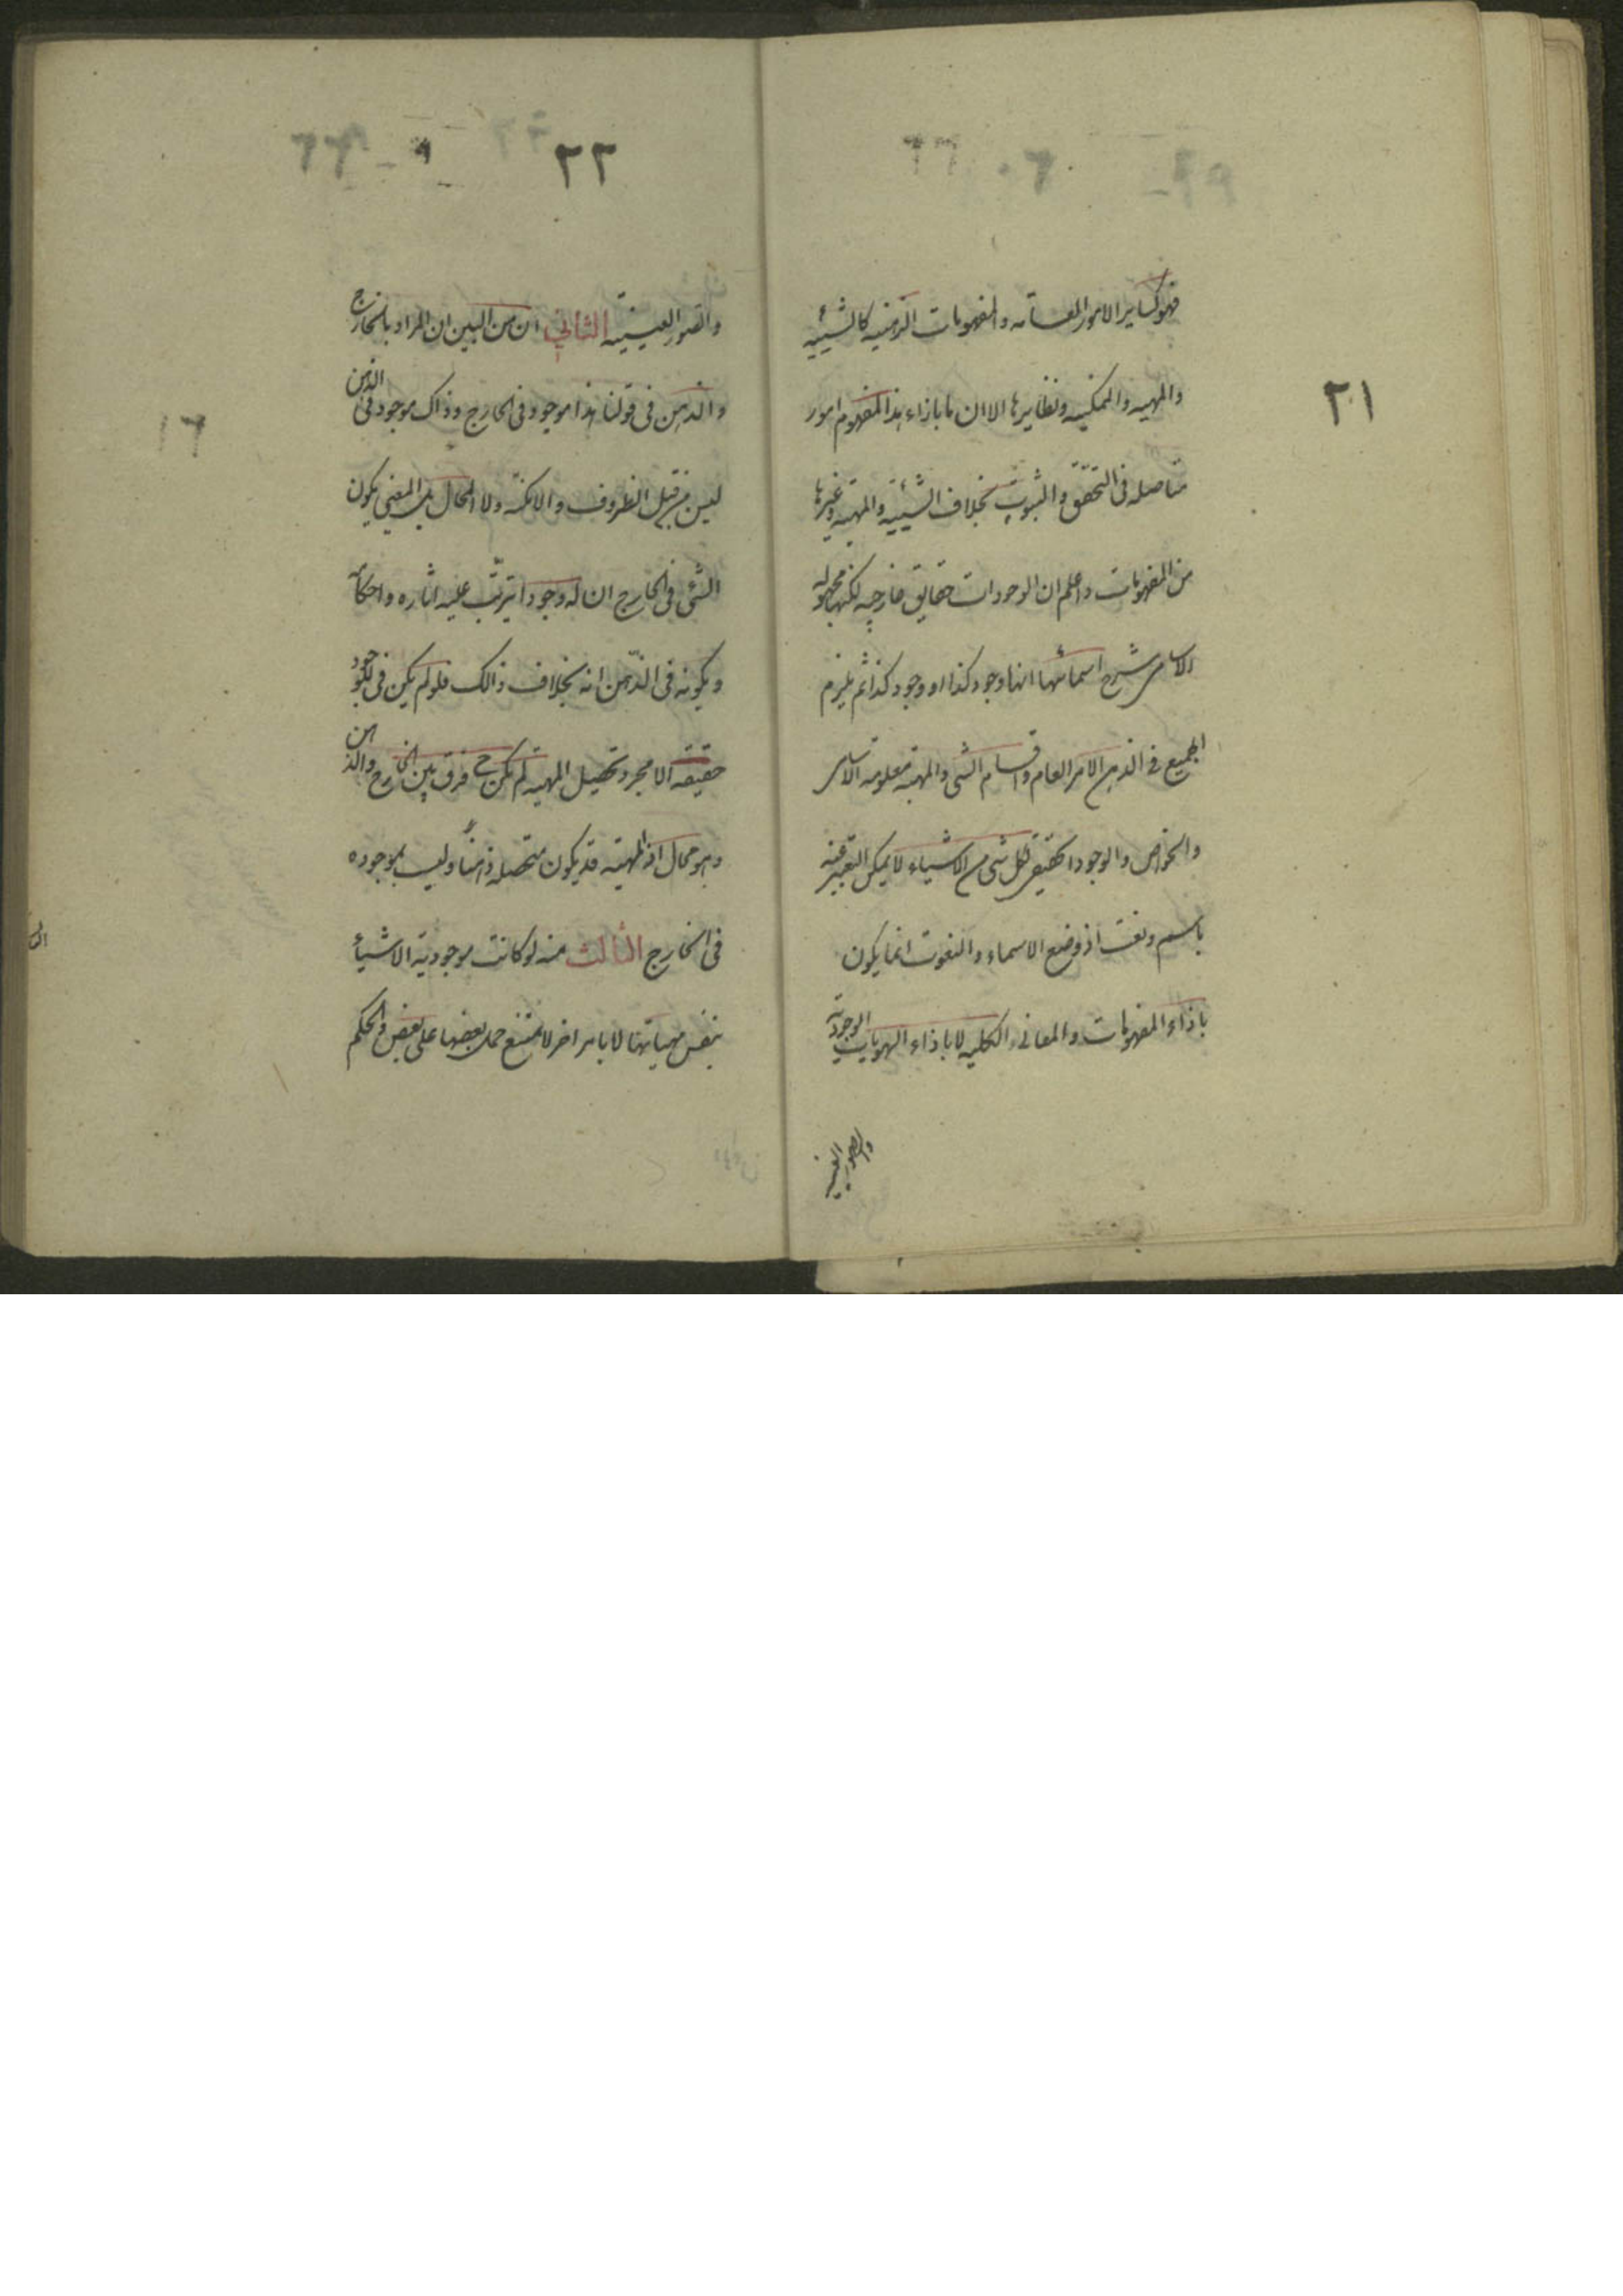 ٢١
فهو كساير الامور العامه والمفهومات الذهنيه كالشيئيه
والمهيه والممكنيه ونظايرها الا ان ما بازاء هذا المفهوم امور
متاصله فى التحقق والثبوت بخلاف الشيئيه والمهيه وغيرها
من المفهومات واعلم ان الوجودات حقايق خارجيه لكنها مجهوله
الاسامى شرح اسمائها انها وجود كذا او وجود كذا ثم يلزم
الجميع فى الذهن الامر العام واقسام الشى والمهية معلومه الاسامى
والخواص والوجود الحقيقى لكل شى من الاشياء لا يمكن التعبير عنه
باسم ونعت اذ وضع الاسماء والنعوت انما يكون
باذاء المفهومات والمعانى الكليه لا باذاء الهويات الوجودية
والصور العينيه
٢٢
والصور العينيته الثانى ان من البين ان المراد بالخارج
والذهن فى قولنا هذا موجود فى الخارج وذاك موجود فى الذهن
ليس من قبيل الظروف والامكنة ولا المحال بل المعنى بكون
الشئ فى الخارج ان له وجودا يترتب عليه اثاره واحكامه
وبكونه فى الذهن انه بخلاف ذالك فلو لم يكن فى الوجود
حقيقه الا مجرد تحصيل المهيته لم يكن ح فرق بين الخارج والذهن
وهو محال اذ المهيته قد يكون متحصله ذهنا وليست بموجوده
فى الخارج الثالث منه لو كانت موجودية الاشيأ
بنفس مهياتها لا بامر اخر لا متنع حمل بعضها على بعض والحكم
١٦